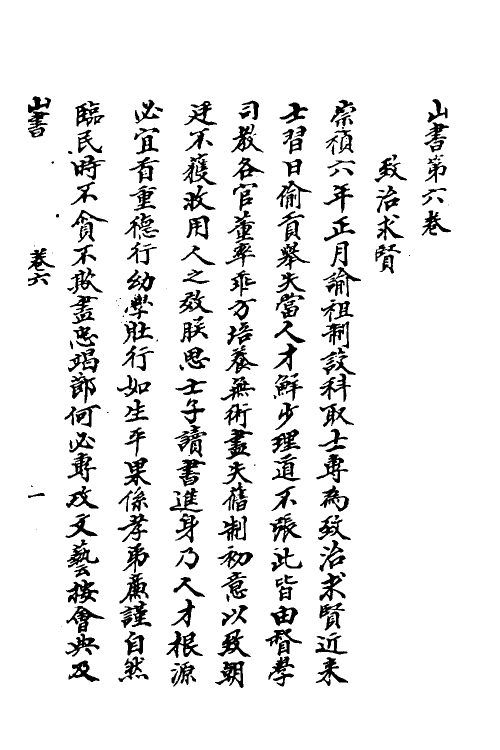 山書第六卷
致治求賢
崇禎六年正月諭祖制設科取士專為致治求賢近来
士習日偷貢舉失當人才鮮少理道不張此皆由督學
司教各官董率乖方培養無術盡失舊制初意以致朝
廷不獲收用人之效朕思士子讀書進身乃人才根源
必宜首重德行幼學壯行如生平果係孝弟廉謹自然
臨民時不貪不欺盡忠竭節何必專攻文藝按會典及
山書
卷六
一